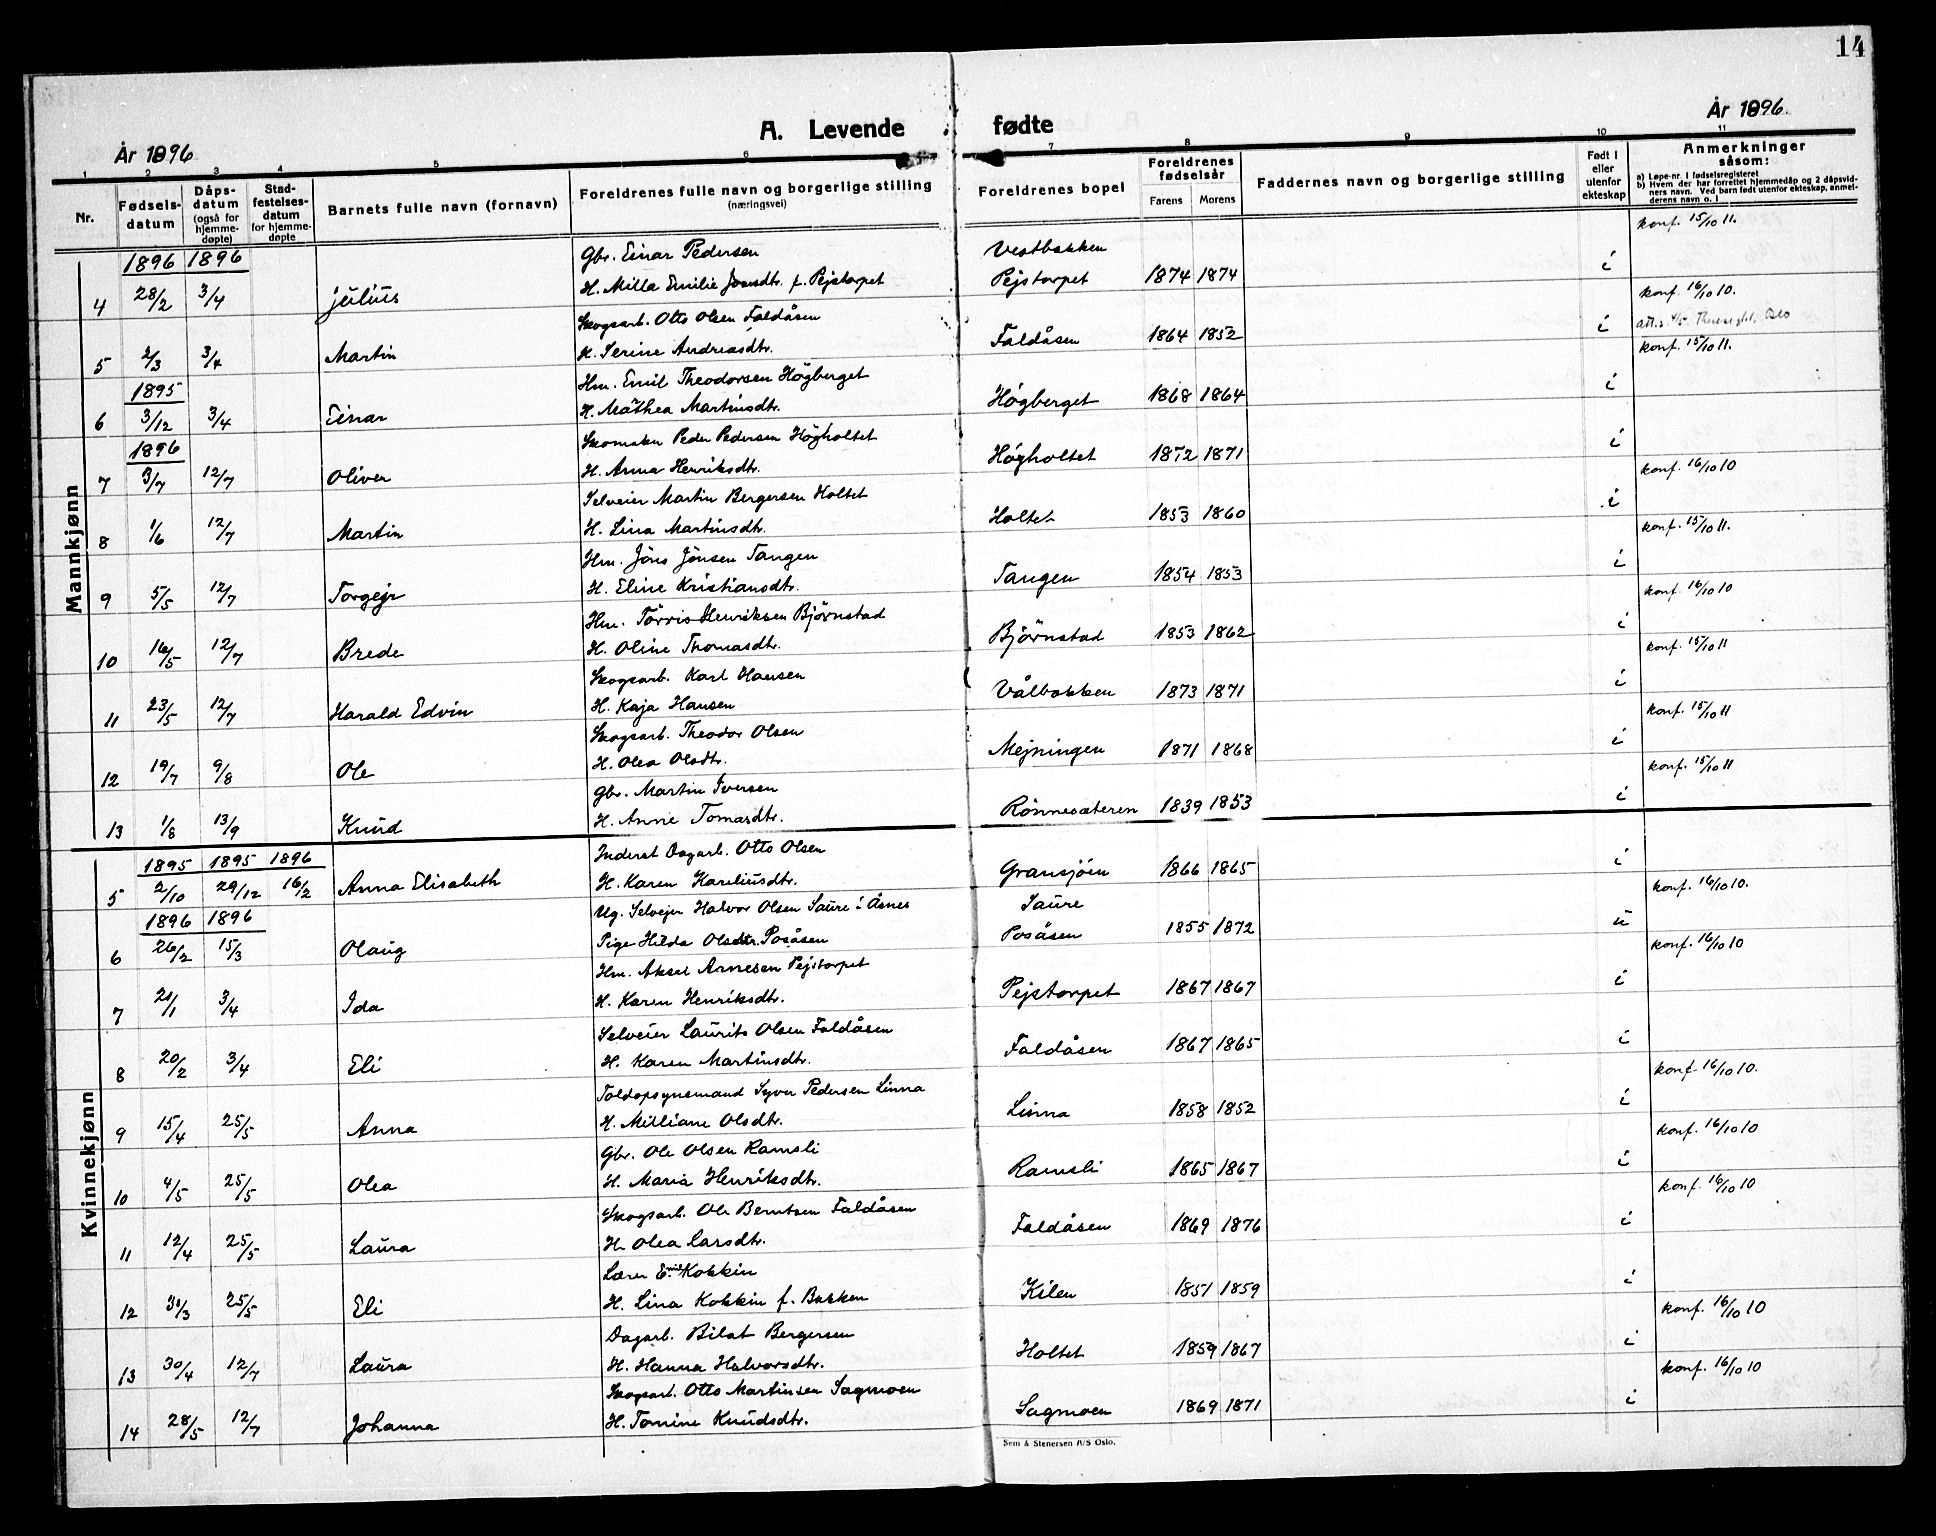 14
År 1896.
A. Levende fødte
År 1896.
1 2 3 4 5 6 7 8 9 10 11
Nr. Fødselsdatum Dåpsdatum (også for hjemmedøpte) Stadfestelsesdatum for hjemmedøpte Barnets fulle navn (fornavn) Foreldrenes fulle navn og borgerlige stilling (næringsvei) Foreldrenes bopel Foreldrenes fødselsår Farens Morens Faddernes navn og borgerlige stilling Født i eller utenfor ekteskap Anmerkninger såsom:
a) Løpe-nr. i fødselsregisteret
b) Hvem der har forrettet hjemmedåp og 2 dåpsvidners navn. Ved barn født utenfor ekteskap, anmelderens navn o. l
Mannkjønn
1896 1896 Gbr. Einar Pedersen Vestbakken konf. 15/10 11.
4 28/2 3/4 Julius H. Milla Emilie Jonsdtr. f. Pejstorpet Pejstorpet 1874 1874 i
Skogsarb. Otto Olsen Faldåsen konf. 16/10 10.
5 2/3 3/4 Martin H. Serine Andreasdtr. Faldåsen 1864 1852 i Oslo
1895 Hm. Emil Theodorsen Högberget konf. 15/10 11.
6 3/12 3/4 Einar H. Mathea Martinsdtr. Högberget 1868 1864 i
1896 Skomaker Peder Pedersen Högholtet
7 3/7 12/7 Oliver H. Anna Henriksdtr. Högholtet 1872 1871 i
Selveier Martin Bergersen Holtet konf. 16/10 10
8 1/6 12/7 Martin H. Lina Martinsdtr. Holtet 1853 1860 i
Hm. Jöns Jönsen Tangen konf. 15/10 11.
9 5/5 12/7 Torgejr H. Eline Kristiansdtr. Tangen 1854 1853 i
Hm. Törris Henriksen Björnstad konf. 16/10 10
10 16/5 12/7 Brede H. Oline Thomasdtr. Björnstad 1853 1862 i
Skogsarb. Karl Hansen konf. 15/10 11
11 23/5 12/7 Harald Edvin H. Kaja Hansen Vålbakken 1873 1871 i
Skogsarb. Theodor Olsen konf. 15/10 11
12 19/7 9/8 Ole H. Olea Olsdtr. Mejningen 1871 1868 i
Gbr. Martin Iversen konf. 15/10 11
13 1/8 13/9 Knud H. Anne Tomasdtr. Rönnesæteren 1839 1853 i
Kvinnekjønn
1895 1895 1896 Inderst Dagarb. Otto Olsen
5 2/10 29/12 16/2 Anna Elisabeth H. Karen Kareliusdtr. Gransjöen 1866 1865 i
1896 1896 Ug. Selvejer Halvor Olsen Saure i Åsnes Saure konf. 16/10 10.
6 26/2 15/3 Olaug Pige Hilda Olsdtr. Posåsen Posåsen 1855 1872 u
Hm. Aksel Arnesen Pejstorpet konf. 16/10 10
7 20/1 3/4 Ida H. Karen Henriksdtr. Pejstorpet 1867 1867 i
Selveier Laurits Olsen Faldåsen
8 20/2 3/4 Eli H. Karen Martinsdtr. Faldåsen 1867 1865 i
Toldopsynsmand Syver Pedersen Linna konf. 16/10 10.
9 15/4 25/5 Anna H. Milliane Olsdtr. Linna 1858 1852 i
Gbr. Ole Olsen Ramsli konf. 16/10 10
10 4/5 25/5 Olea H. Maria Henriksdtr. Ramsli 1865 1867 i
Skogsarb. Ole Berntsen Faldåsen konf. 16/10 10
11 12/4 25/5 Laura H. Olea Larsdtr. Faldåsen 1869 1876 i
Lærer Emil Kokkin
12 31/3 25/5 Eli H. Lina Kokkin f. Bakken Kilen 1851 1859 i
Dagarb. Bilat Bergersen konf. 16/10 10
13 30/4 12/7 Laura H. Hanna Halvorsdtr. Holtet 1859 1867 i
Skogsarb. Otto Martinsen Sagmoen konf. 16/10 10
14 28/5 12/7 Johanna H. Tomine Knudsdtr. Sagmoen 1869 1871 i
Sem & Stenersen A/S Oslo.